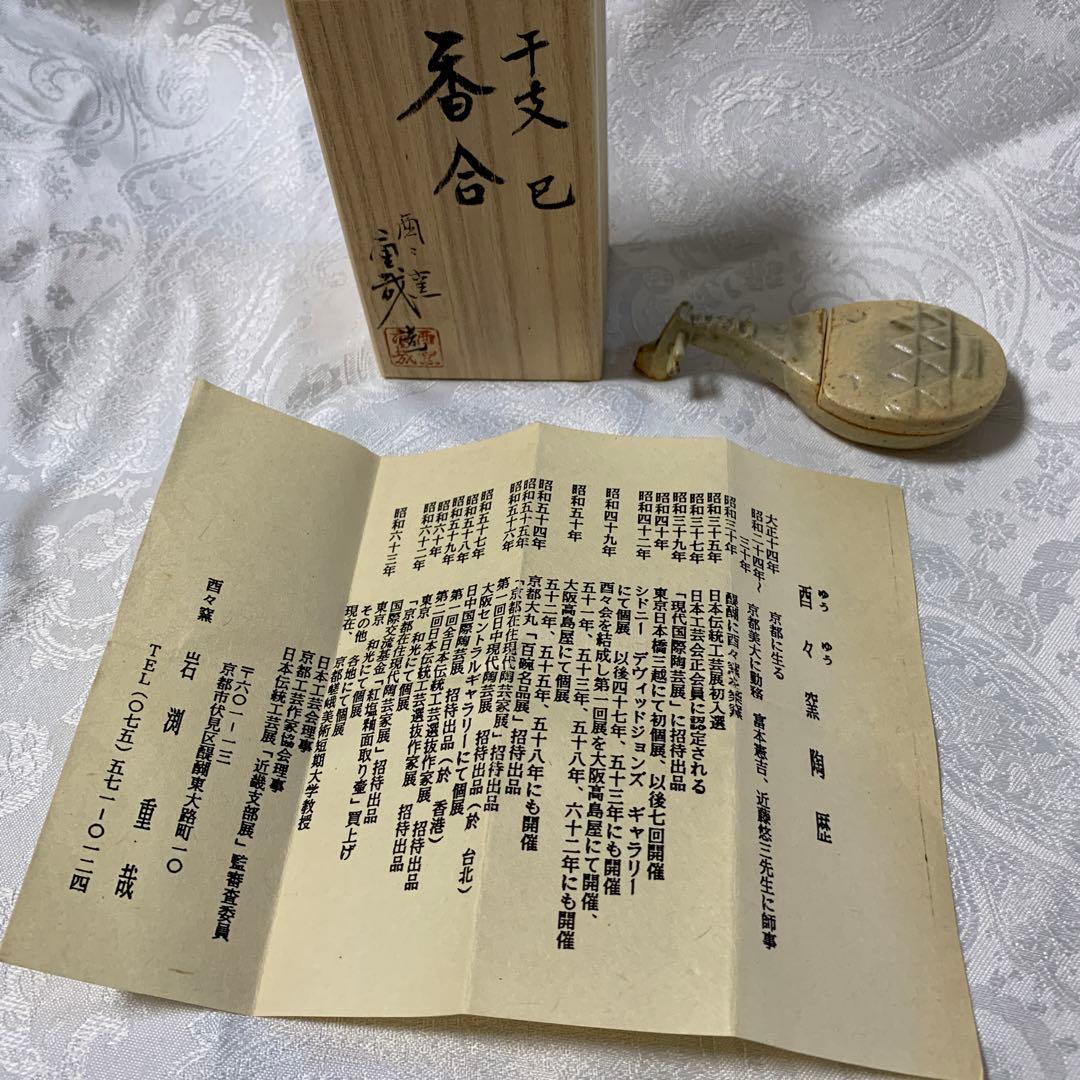 干支 巳
香合
酉々窯
重哉
酉々窯陶歴
ゆうゆう
大正十四年 京都に生る
昭和二十四年〜三十年 京都美大に勤務 富本憲吉、近藤悠三先生に師事
昭和三十年 醍醐に酉々窯を築窯
昭和三十五年 日本伝統工芸展初入選
昭和三十七年 日本工芸会正会員に認定される
昭和三十九年 「現代国際陶芸展」に招待出品
昭和四十年 東京日本橋三越にて初個展、以後七回開催
昭和四十二年 シドニー デヴィッドジョンズ ギャラリー
にて個展 以後四十七年、五十三年にも開催
昭和四十九年 酉々会を結成し第一回展を大阪高島屋にて開催、
五十一年、五十三年、五十八年、六十二年にも開催
昭和五十年 大阪高島屋にて個展
五十二年、五十五年、五十八年にも開催
昭和五十四年 京都大丸「百碗名品展」招待出品
昭和五十五年 「京都在住現代陶芸家展」招待出品
昭和五十六年 第一回日中現代陶芸展 招待出品(於 台北)
昭和五十七年 大阪セントラルギャラリーにて個展
昭和五十八年 日中国際陶芸展 招待出品(於 香港)
昭和五十九年 第一回全日本伝統工芸選抜作家展 招待出品
昭和六十年 第二回日本伝統工芸選抜作家展 招待出品
昭和六十二年 東京 和光にて個展
「京都在住現代陶芸家展」招待出品
昭和六十三年 国際交流基金「紅塩釉面取り壷」買上げ
東京 和光にて個展
その他 各地にて個展
現在、京都嵯峨美術短期大学教授
日本工芸会理事
京都工芸作家協会理事
日本伝統工芸展「近畿支部展」監審査委員
〒六〇一—一三
京都市伏見区醍醐東大路町一〇
酉々窯 岩渕重哉
TEL(〇七五)五七一—〇一二四